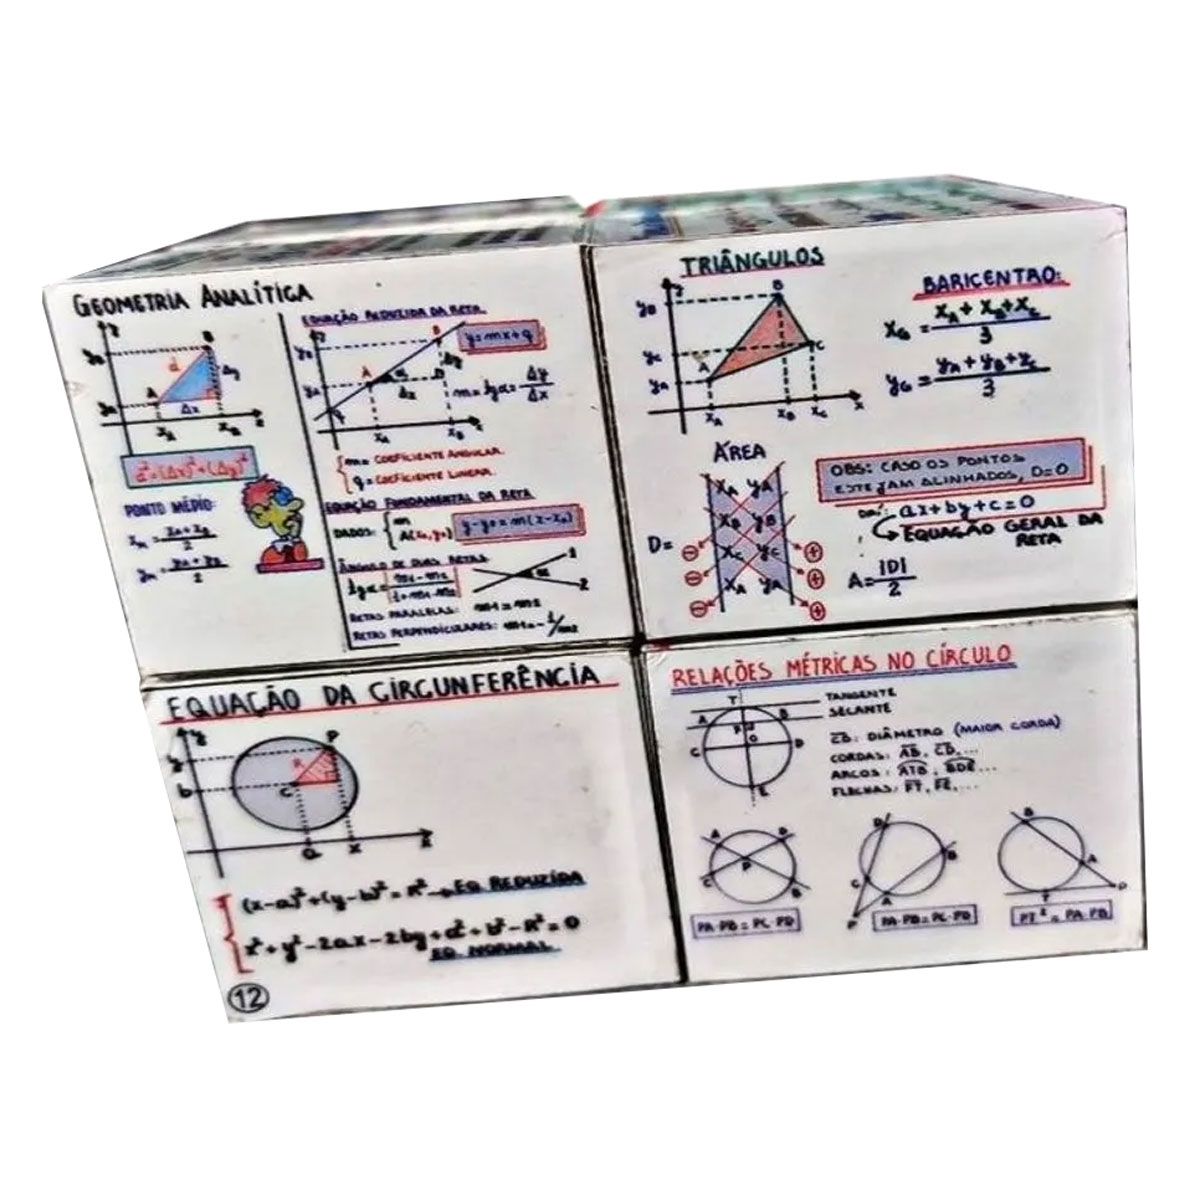 GEOMETRIA ANALÍTICA
B
d
A
Δy
Δx
d²=(Δx)²+(Δy)²
PONTO MÉDIO:
EQUAÇÃO REDUZIDA DA RETA
y=mx+q
m=tgα=Δy/Δx
m= COEFICIENTE ANGULAR
q= COEFICIENTE LINEAR
EQUAÇÃO FUNDAMENTAL DA RETA
DADOS: m
A(x₀,y₀)
y-y₀=m(x-x₀)
ÂNGULO DE DUAS RETAS
RETAS PARALELAS: m1=m2
RETAS PERPENDICULARES: m1=-1/m2
TRIÂNGULOS
B
C
A
BARICENTRO:
x_G = (x_A + x_B + x_C)/3
ÁREA
x_A y_A
x_B y_B
x_C y_C
x_A y_A
D=
OBS: CASO OS PONTOS
ESTEJAM ALINHADOS, D=0
ax+by+c=0
EQUAÇÃO GERAL DA
RETA
A=|D|/2
EQUAÇÃO DA CIRCUNFERÊNCIA
y
P
R
b
C
a x
(x-a)²+(y-b)²=R² → EQ. REDUZIDA
x²+y²-2ax-2by+a²+b²-R²=0
EQ. NORMAL
12
RELAÇÕES MÉTRICAS NO CÍRCULO
TANGENTE
SECANTE
CD: DIÂMETRO (MAIOR CORDA)
CORDAS: AB, CD,...
ARCOS: ATB, BDE...
FLECHAS: FT, FE,...
PA·PB=PC·PD
PA·PB=PC·PD
PT²=PA·PB